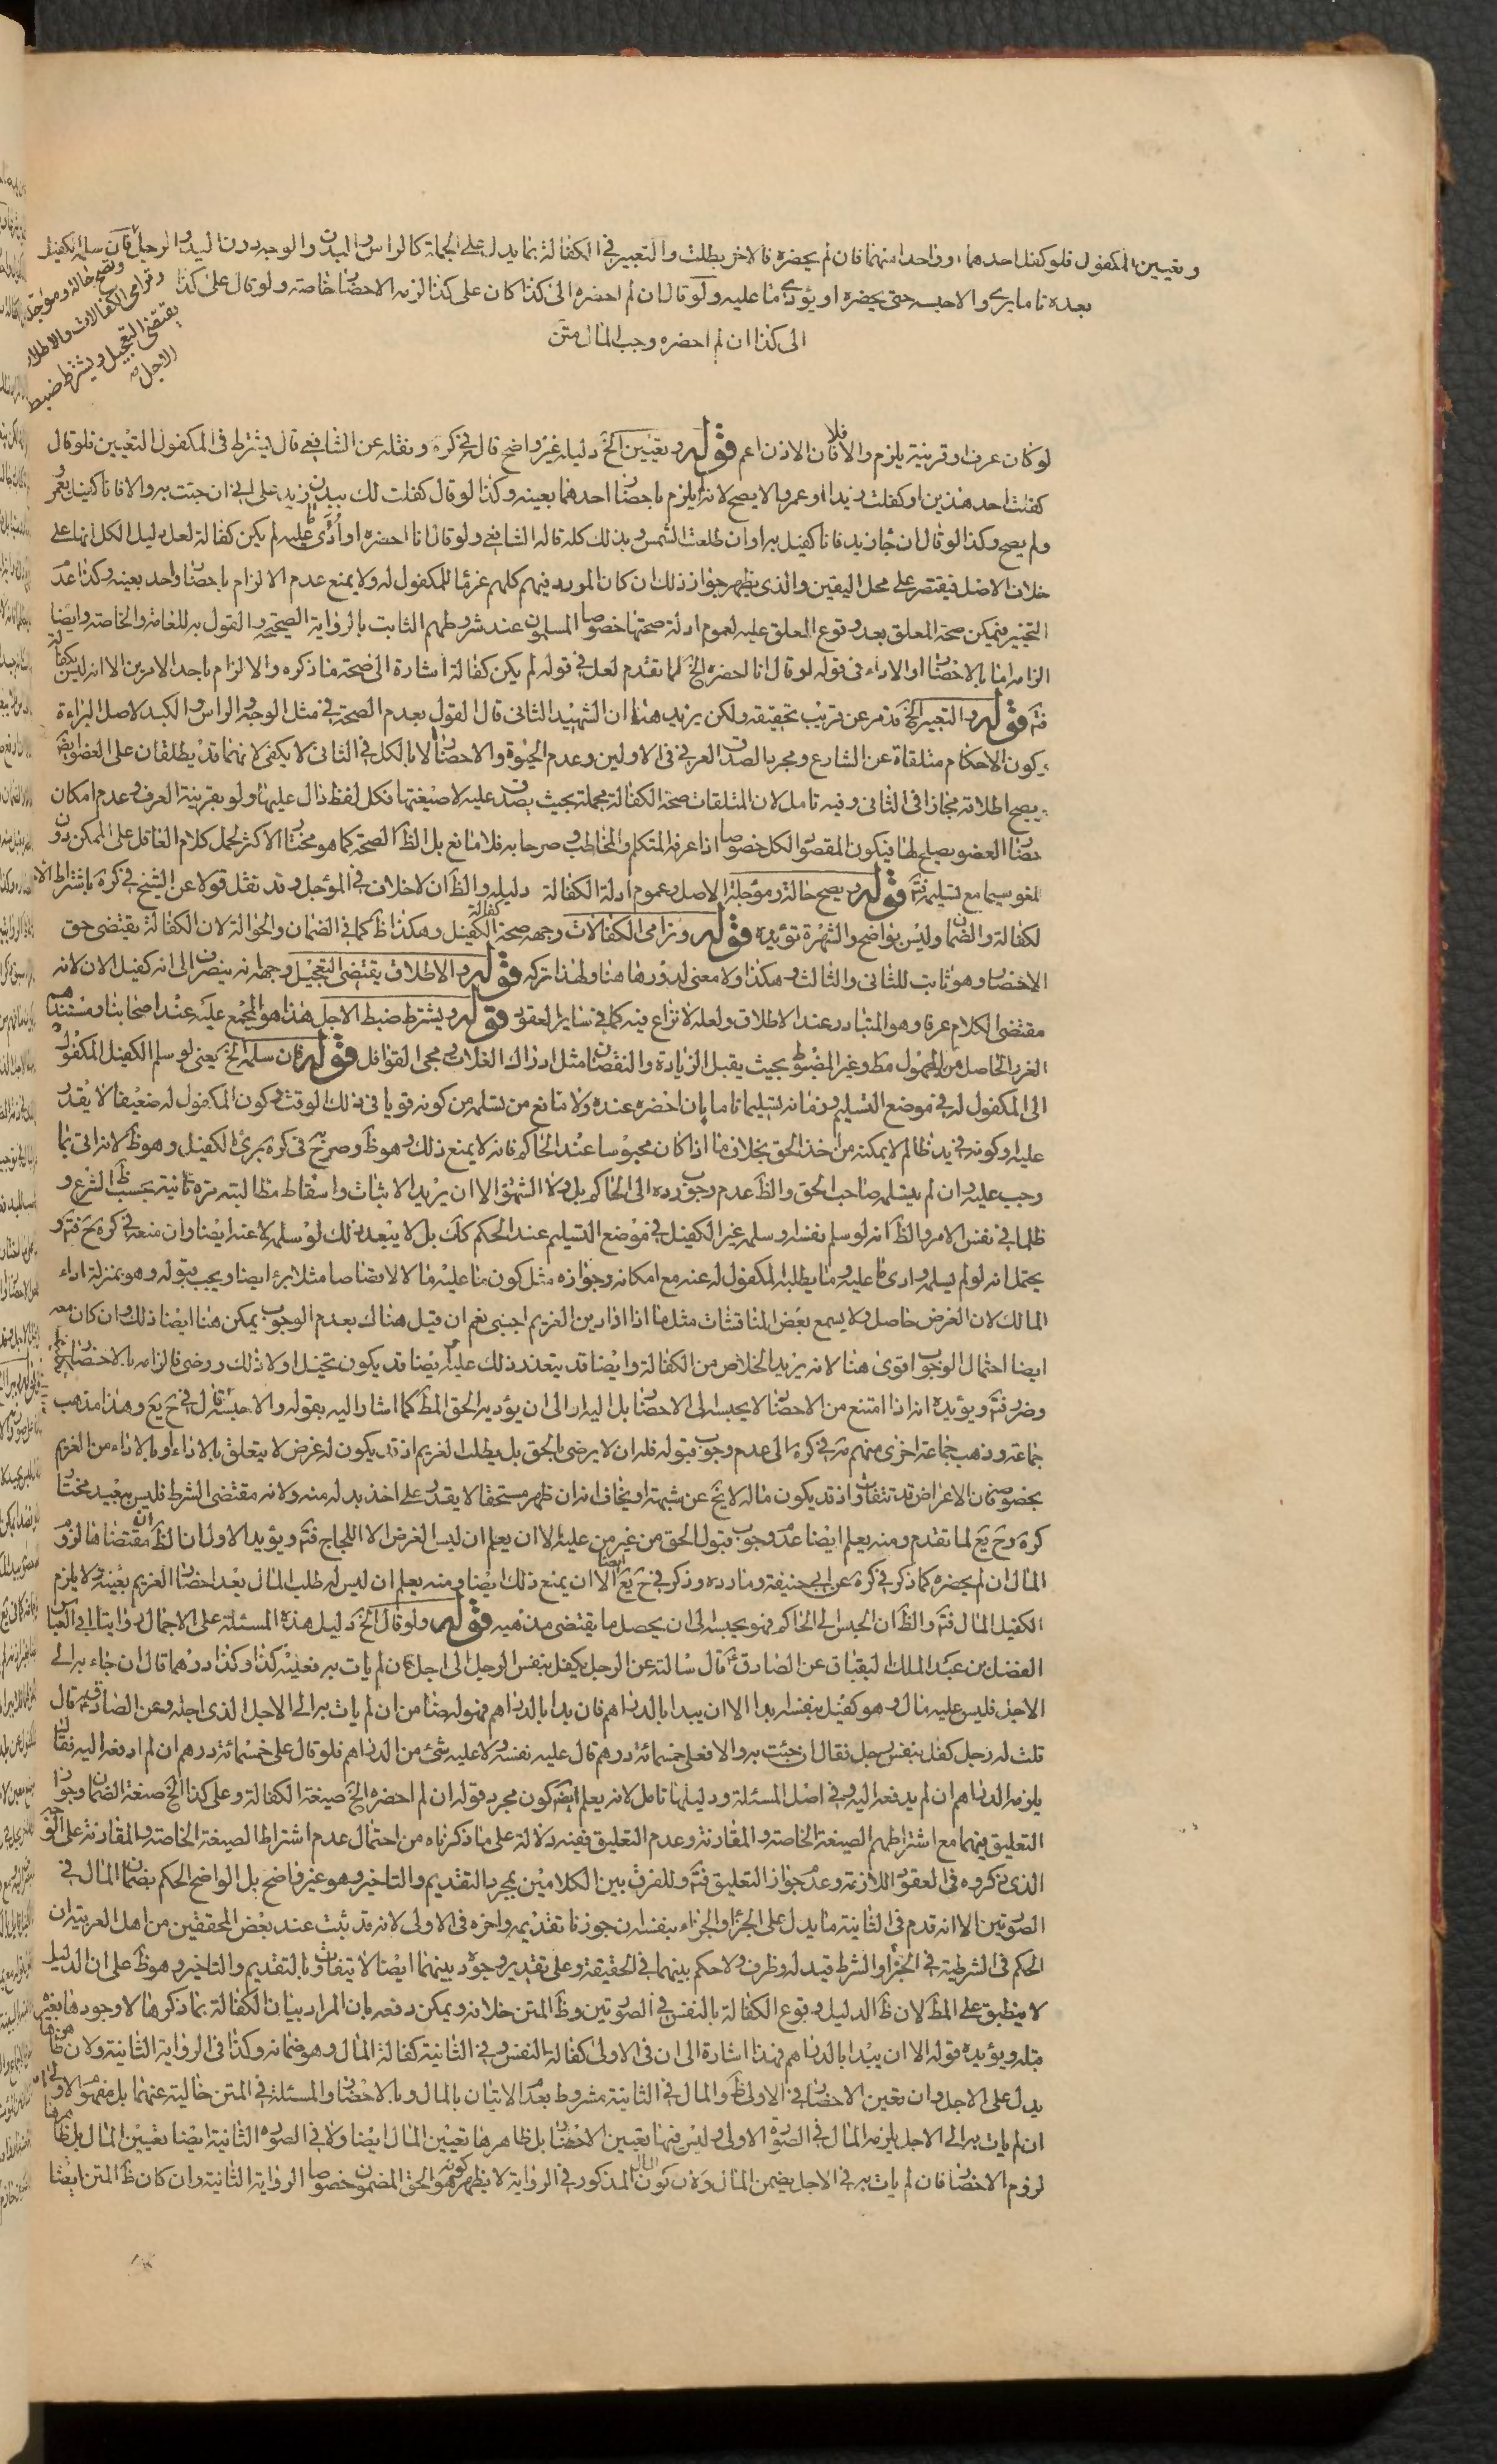 وتعيين المكفول فلو كفل احدهما او واحدا منهما فان لم يحضره فالاخر بطلت والتعبير في الكفالة بما يدل على الجملة كالراس والبدن والوجه دون اليد والرجل فان سلم الكفيل
بعده تاما برئ والا حبس حتى يحضره او يؤدي ما عليه ولو قال ان لم احضره الى كذا كان على كذا لزمه الاحضار خاصة ولو قال على كذا
الى كذا ان لم احضره وجب المال متن
وتصح حالة ومؤجلة
وترامى الكفالات والاطلاق
يقتضى التعجيل ويشترط ضبط
الاجل
لو كان عرف او قرينة يلزم والا فلا فان الاذن اعم قوله وتعيين الخ دليله غير واضح قال في كره ونقله عن الشافعي قال يشترط في المكفول التعيين فلو قال
كفلت احد هذين او كفلت زيدا او عمروا لا يصح لانه لم يلزم باحضار احدهما بعينه وكذا لو قال كفلت لك ببدن زيد على اني ان جئت به والا فانا كفيل بعمرو
ولم يصح وكذا لو قال ان جاء زيد فانا كفيل به او ان طلعت الشمس وبذلك كله قال الشافعي ولو قال انا احضره او اؤدي ما عليه لم يكن كفالة لعل دليل الكل انها على
خلاف الاصل فيقتصر على محل اليقين والذي يظهر جواز ذلك ان كان المورد فيهم كلهم غرما للمكفول له ولا يمنع عدم الالزام باحضار واحد بعينه وكذا عدم
التخيير فيمكن صحة المعلق بعد وقوع المعلق عليه لعموم ادلة صحتها خصوصا المسلمون عند شروطهم الثابت بالرواية الصحيحة والقول به للعامة والخاصة وايضا
الزامه اما بالاحضار او الاداء في قوله لو قال انا احضره الخ لما تقدم لعل في قوله لم يكن كفالة اشارة الى صحة ما ذكره والالزام باحد الامرين الا انه ليس بكفالة
فتم قوله والتعبير الخ قد مر عن قريب تحقيقه ولكن يزيد هنا ان الشهيد الثاني قال القول بعدم الصحة في مثل الوجه والراس والكبد لاصل البراءة
وكون الاحكام متلقاة عن الشارع ومجرد الصدق العرفي في الاولين وعدم الحيوة والاحضار الا بالكل في الثاني لا يكفي لانهما قد يطلقان على العضو ايضا
ويصح اطلاقه مجازا في الثاني وفيه تامل لان المتلقات صحة الكفالة مجملة بحيث يصدق عليه لا صيغتها فكل لفظ دال عليها ولو بقرينة العرف وعدم امكان
حضار العضو يصلح لها فيكون المقصود الكل خصوصا اذا عرفه المتكلم والمخاطب وصرحا به فلا مانع بل الظ الصحة كما هو مختار الاكثر لحمل كلام العاقل على الممكن دون
اللغو سيما مع تسليمه فتم قوله ويصح حالة ومؤجلة الاصل وعموم ادلة الكفالة دليله والظ ان لا خلاف في المؤجل وقد نقل قولا عن الشيخ في كره باشتراط الاجل
لكفالة والضمان وليس بواضح والشهرة تؤيده قوله وترامى الكفالات وجهه صحة كفالة الكفيل وهكذا ظ كما في الضمان والحوالة لان الكفالة يقتضى حق
الاحضار وهو ثابت للثاني والثالث وهكذا ولا معنى لدورها هنا ولهذا تركه قوله والاطلاق يقتضى التعجيل وجهه انه ينصرف الى انه كفيل الان لانه
مقتضى الكلام عرفا وهو المتبادر عند الاطلاق ولعله لا نزاع فيه كما في ساير العقود قوله ويشترط ضبط الاجل هذا هو المجمع عليه عند اصحابنا ومستنده
الغرر الحاصل من المجهول مط وغير المضبوط بحيث يقبل الزيادة والنقصان مثل ادراك الغلات ومجئ القوافل قوله فان سلمه الخ يعني لو سلم الكفيل المكفول
الى المكفول له في موضع التسليم وزمانه تسليما تاما بان احضره عنده ولا مانع من تسلمه من كونه قويا في ذلك الوقت وكون المكفول له ضعيفا لا يقدر
عليه او كونه في يد ظالم لا يمكنه من اخذ الحق بخلاف ما اذا كان محبوسا عند الحاكم فانه لا يمنع ذلك وهو ظ وصرح في كره برئ الكفيل وهو ظ لانه اتى بما
وجب عليه وان لم يتسلمه صاحب الحق والظ عدم وجوب رده الى الحاكم بل ولا الشهود الا ان يريد الاثبات واسقاط مطالبته مرة ثانية بحسب ظ الشرع و
ظلما في نفس الامر والظ انه لو سلم نفسه او سلمه غير الكفيل في موضع التسليم عند الحكم كك بل لا يبعد ذلك لو سلمه لا عنه ايضا وان منعه في كره فتم و
يحتمل انه لو لم يسلمه وادى ما عليه وما يطلبه المكفول له عنه مع امكانه وجوازه مثل كون ما عليه مالا لا قصاصا مثلا برئ ايضا ويجب قبوله وهو بمنزلة اداء
المالك لان الغرض حاصل ولا يسمع بعض المناقشات مثل ما اذا ادى دين الغريم اجنبى نعم ان قيل هناك بعدم الوجوب يمكن هنا ايضا ذلك وان كان معه
ايضا احتمال الوجوب اقوى هنا لانه يريد الخلاص من الكفالة وايضا قد يتعذر ذلك عليه وايضا قد يكون تخيل اولا ذلك ورضى فالزامه بالاحضار
وضرر فتم ويؤيده انه اذا امتنع من الاحضار لا يحبس الى الاحضار بل اليه او الى ان يؤديه الحق المط كما اشار اليه بقوله والا حبس قال في ح يع وهذا مذهب
جماعة وذهب جماعة اخرى منهم مة في كره الى عدم وجوب قبوله فله ان لا يرضى بالحق بل يطلب الغريم اذ قد يكون له غرض لا يتعلق بالاداء او بالاداء من الغريم
بخصوصه فان الاغراض قد تتفاوت اذ قد يكون ماله لا يخ عن شبهة او يخاف انه ان ظهر مستحقا لا يقدر على اخذ بدله منه ولانه مقتضى الشرط فليس ببعيد مختار
كره وح يع لما تقدم ومنه يعلم ايضا عدم وجوب قبول الحق من غير من عليه الا ان يعلم ان ليس الغرض الا اللجاج فتم ويؤيد الاول ان الظ ان مقتضاها لزوم
المال ان لم يحضره كما ذكر في كره عن ابي حنيفة وما رده وذكر في ح يع ايضا الا ان يمنع ذلك ايضا ومنه يعلم ان ليس له طلب المال بعد احضار الغريم بعينه ولا يلزم
الكفيل المال فتم والظ ان الحبس الى الحاكم فهو يحبسه الى ان يحصل ما يقتضى مذهبه قوله ولو قال الخ دليل هذه المسئلة على الاجمال روايتا ابي العباس
الفضل بن عبد الملك البقباق عن الصادق ع قال سالته عن الرجل يكفل بنفس الرجل الى اجل فان لم يات به فعليه كذا وكذا درهما قال ان جاء به الى
الاجل فليس عليه مال وهو كفيل بنفسه ابدا الا ان يبدا بالدراهم فان بدا بالدراهم فهو له ضامن ان لم يات به الى الاجل الذي اجله وعن الصادق ع قال
قلت له رجل كفل بنفس رجل فقال ان جئت به والا فعلى خمسمائة درهم قال عليه نفسه ولا عليه شئ من الدراهم فلو قال على خمسمائة درهم ان لم ادفعه اليه فقال
يلزمه الدراهم ان لم يدفعه اليه وفي اصل المسئلة ودليلها تامل لانه يعلم ايضه كون مجرد قوله ان لم احضره الخ صيغة الكفالة وعلى كذا الخ صيغة الضمان وجواز
التعليق فيهما مع اشتراطهم الصيغة الخاصة والمقارنة وعدم التعليق ففيه دلالة على ما ذكرناه من احتمال عدم اشتراط الصيغة الخاصة والمقارنة على الوجه
الذي ذكروه في العقود اللازمة وعدم جواز التعليق فتم وللفرق بين الكلامين بمجرد التقديم والتاخير وهو غير واضح بل الواضح الحكم بضمان المال في
الصورتين الا انه قدم في الثانية ما يدل على الجزاء او الجزاء بنفسه ان جوزنا تقديمه واخره في الاولى لانه قد يثبت عند بعض المحققين من اهل العربية ان
الحكم في الشرطية في الجزاء والشرط قيد له وظرف ولا حكم بينهما في الحقيقة وعلى تقدير وجوده بينهما ايضا لا يتفاوت بالتقديم والتاخير وهو ظ على ان الدليل
لا ينطبق على المط لان ظ الدليل وقوع الكفالة بالنفس في الصورتين وظ المتن خلافه ويمكن دفعه بان المراد بيان الكفالة بما ذكرها لا وجودها بغيره
قبله ويؤيده قوله الا ان يبدا بالدراهم فهذا اشارة الى ان في الاولى كفالة النفس وفي الثانية كفالة المال وهو ضمانه وكذا في الرواية الثانية ولان ظاهرها
يدل على الاجل وان تعين الاحضار في الاولى ظ والمال في الثانية مشروط بعدم الاتيان بالمال وبالاحضار والمسئلة في المتن خالية عنهما بل مفهوم الاولى
ان لم يات به الى الاجل يلزمه المال في الصورة الاولى وليس فيها تعيين الاحضار بل ظاهرها تعيين المال ايضا ولا في الصورة الثانية ايضا تعيين المال بل ظاهرها
لزوم الاحضار فان لم يات به في الاجل يضمن المال ولان كون المال المذكور في الرواية لا يظهر كونه هو الحق المضمون خصوصا الرواية الثانية وان كان ظ المتن ايضا